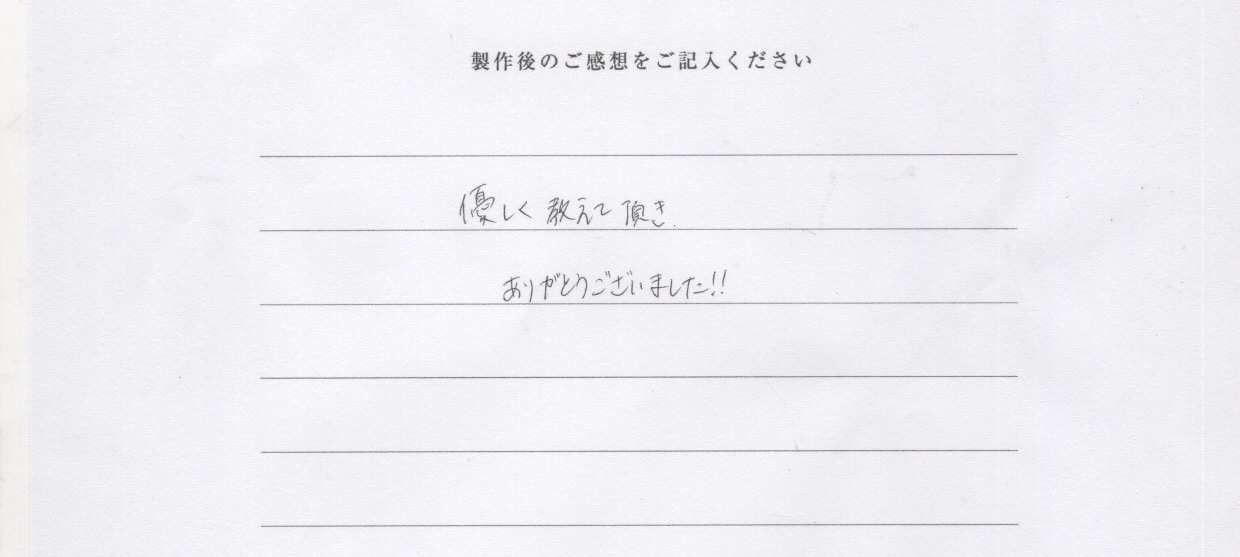 製作後のご感想をご記入ください
優しく教えて頂き
ありがとうございました!!